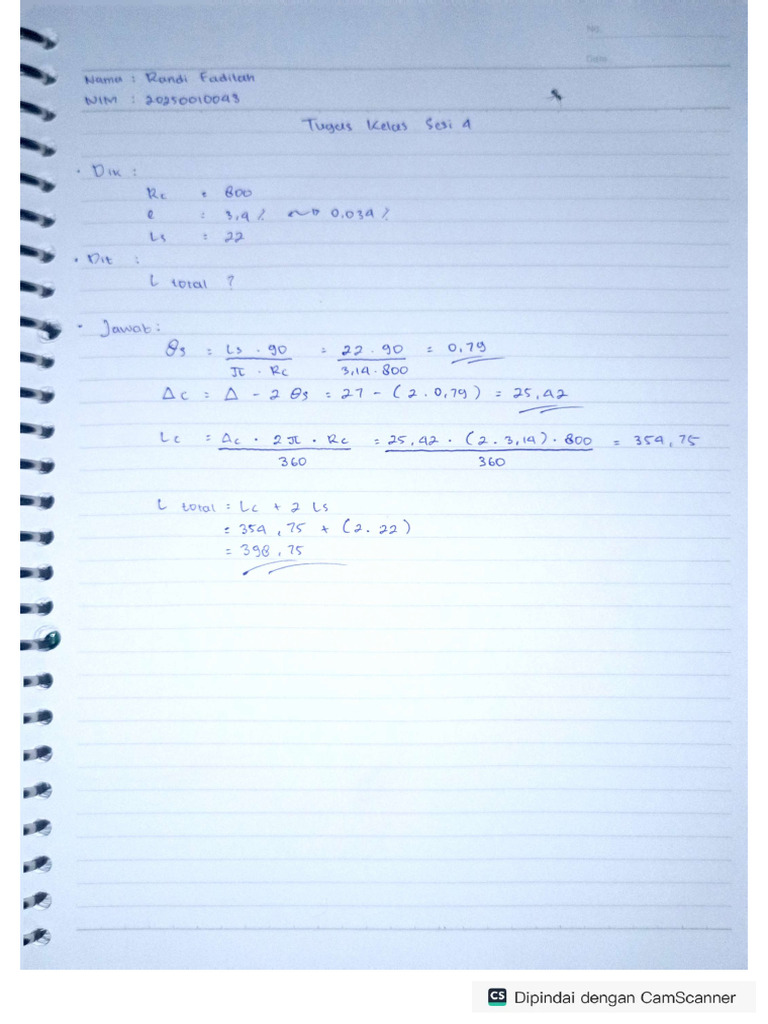 No.
Date
Nama : Randi Fadilah
NIM : 20250010048
Tugas Kelas Sesi 4
• Dik :
Rc : 800
e : 3,4 % ~> 0,034 %
Ls : 22
• Dit :
L total ?
• Jawab :
θs = Ls . 90 / π . Rc = 22 . 90 / 3,14 . 800 = 0,79
Δc = Δ - 2 θs = 27 - (2 . 0,79) = 25,42
Lc = Δc . 2π . Rc / 360 = 25,42 . (2 . 3,14) . 800 / 360 = 354,75
L total = Lc + 2 Ls
= 354,75 + (2 . 22)
= 398,75
CS Dipindai dengan CamScanner